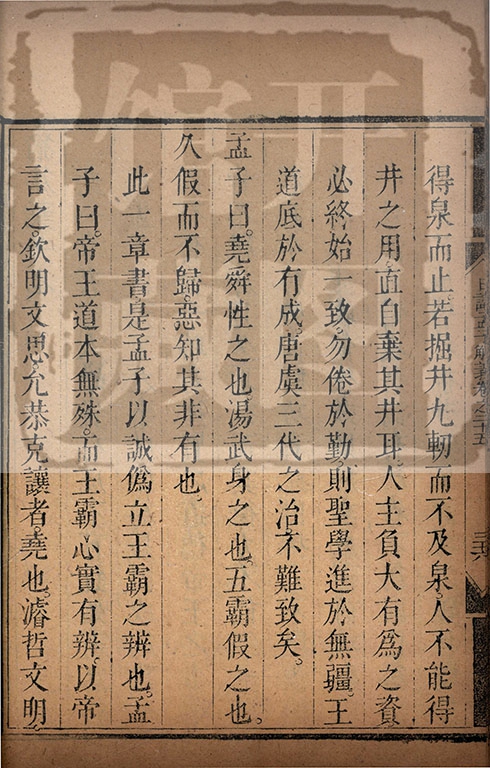 得泉而止。若掘井九軔而不及泉。人不能得
井之用。直自棄其井耳。人主負大有爲之資
必終始一致。勿倦於勤。則聖學進於無疆。王
道底於有成。唐虞三代之治。不難致矣。
孟子曰。堯舜性之也。湯武身之也。五霸假之也。
久假而不歸。惡知其非有也。
此一章書。是孟子以誠僞立王霸之辨也。孟
子曰。帝王道本無殊。而王霸心實有辨。以帝
言之。欽明文思。允恭克讓者。堯也。濬哲文明。
日講四書解義卷之二十五
三六
开馆
图藏